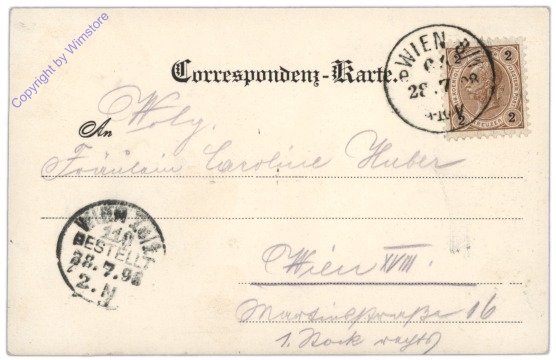 Copyright by Wimstore
Correspondenz-Karte.
WIEN
28.7.98
2 2
2 2
KREUZER
An
Wolg.
Fräulein Caroline Huber
WIEN
BESTELLT
28.7.98
2.N
Wien XVIII.
Martinstraße 16
1. Stock rechts